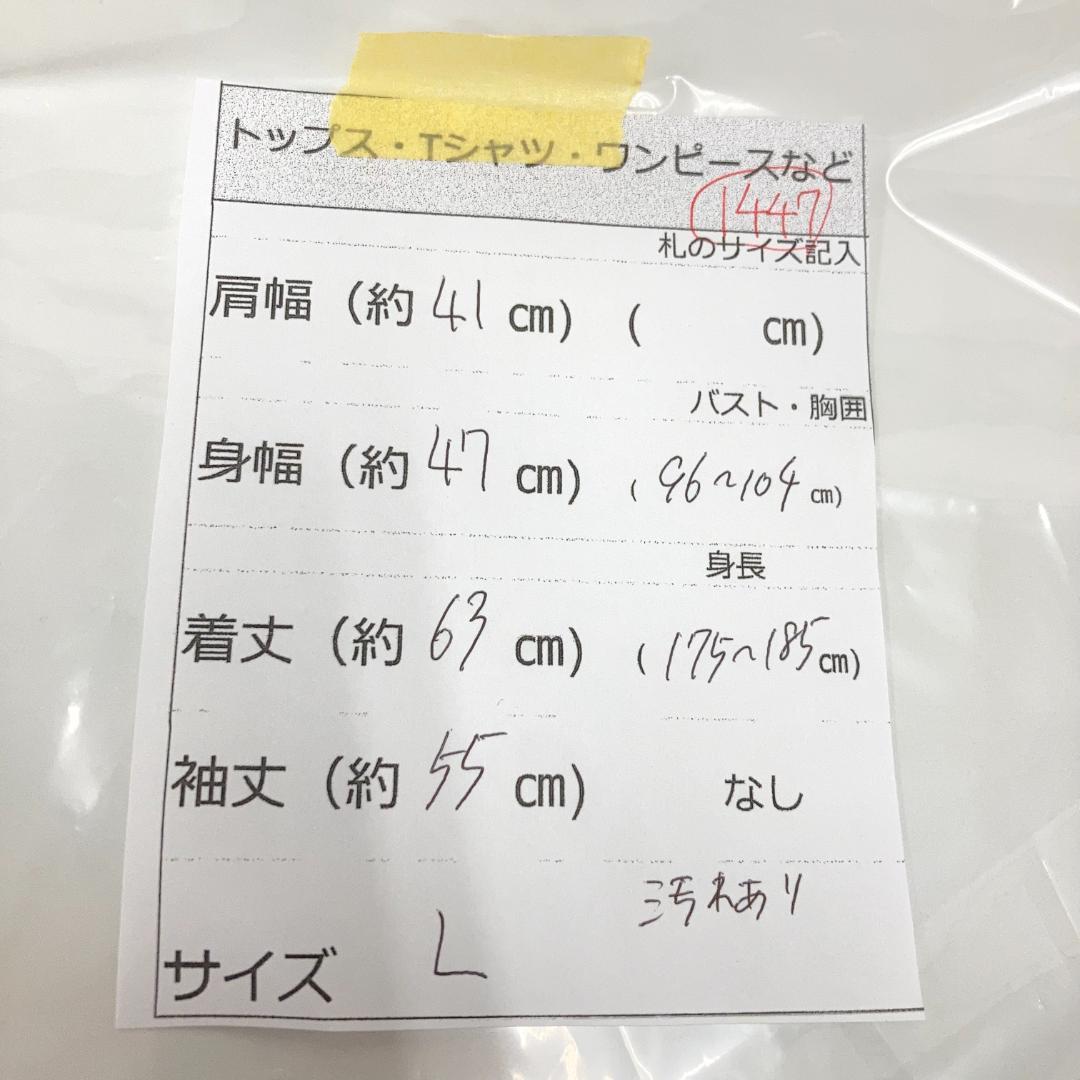 トップス・Tシャツ・ワンピースなど
1447
札のサイズ記入
肩幅 (約 41 cm) ( cm)
バスト・胸囲
身幅 (約 47 cm) ( 96~104 cm)
身長
着丈 (約 63 cm) ( 175~185 cm)
袖丈 (約 55 cm) なし
汚れあり
サイズ L